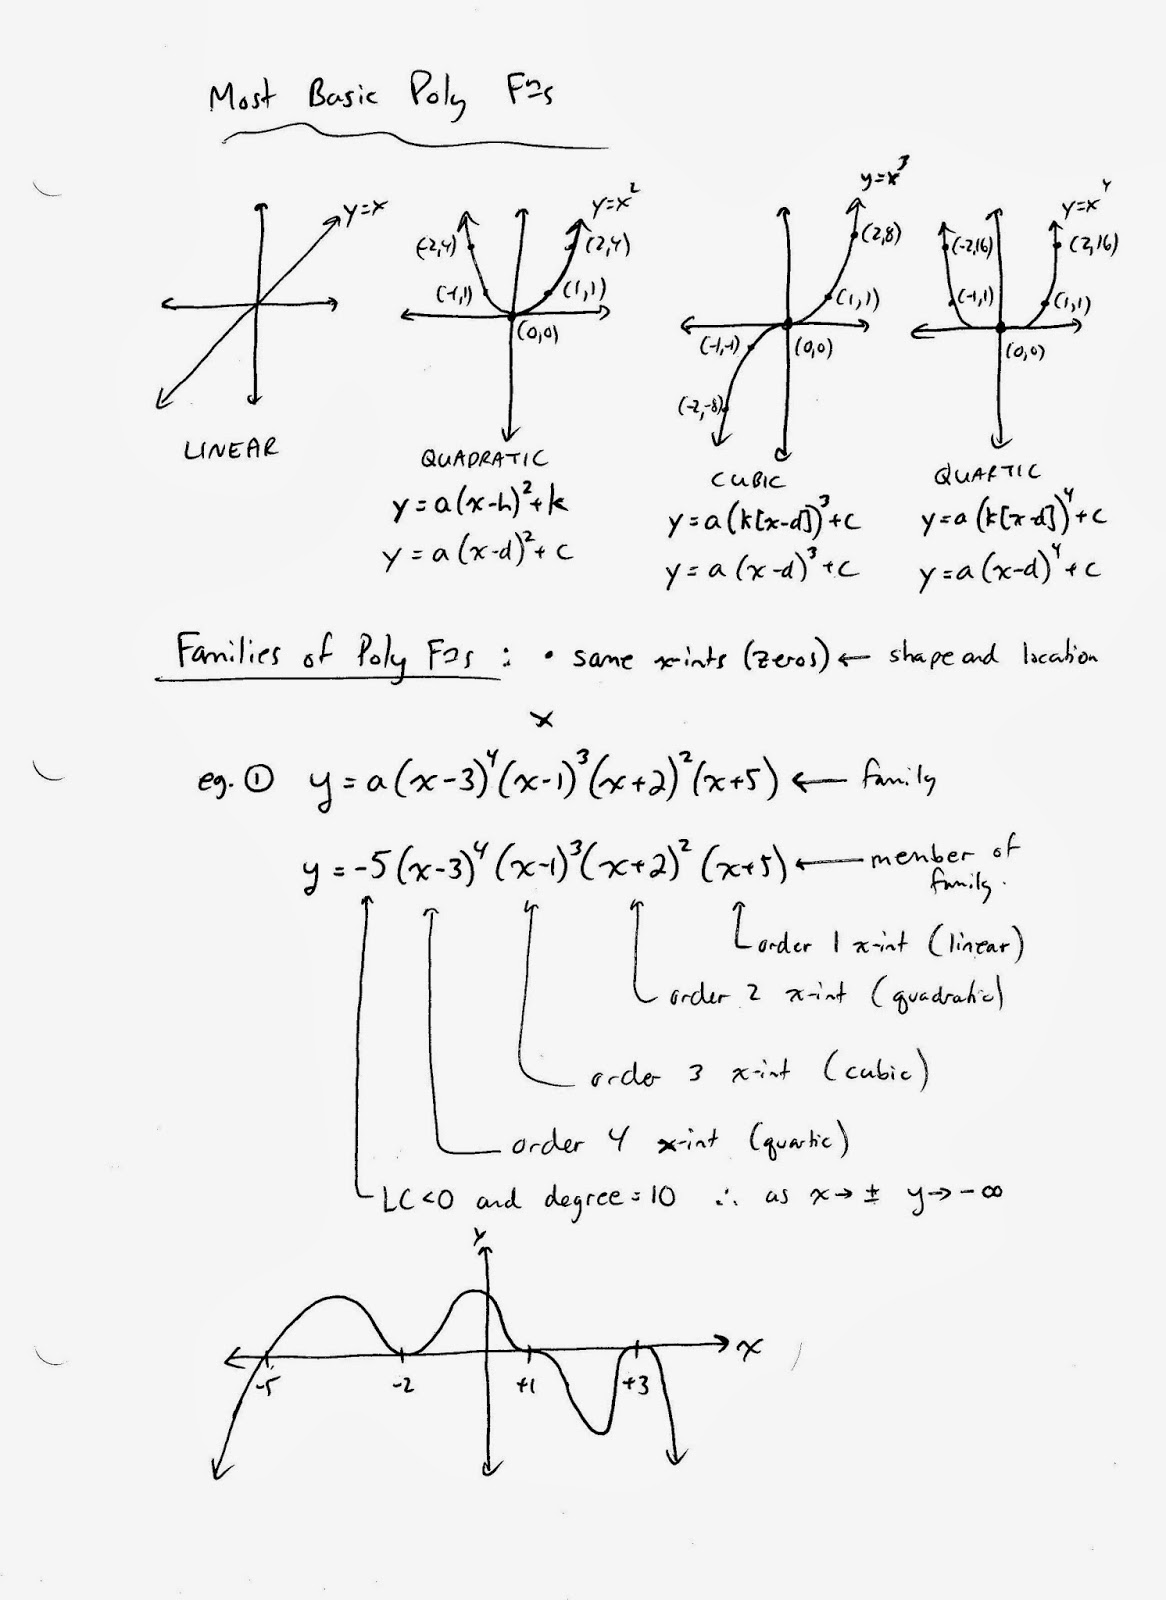 Most Basic Poly Fns
y=x
y=x²
(-2,4)
(2,4)
(-1,1)
(1,1)
(0,0)
y=x³
(2,8)
(1,1)
(-1,-1)
(0,0)
(-2,-8)
y=x⁴
(-2,16)
(2,16)
(-1,1)
(1,1)
(0,0)
LINEAR
QUADRATIC
y=a(x-h)²+k
y=a(x-d)²+c
CUBIC
y=a(k[x-d])³+c
y=a(x-d)³+c
QUARTIC
y=a(k[x-d])⁴+c
y=a(x-d)⁴+c
Families of Poly Fns : • same x-ints (zeros) ← shape and location
x
eg. ① y=a(x-3)⁴(x-1)³(x+2)²(x+5) ← family
y=-5(x-3)⁴(x-1)³(x+2)²(x+5) ← member of
family.
order 1 x-int (linear)
order 2 x-int (quadratic)
order 3 x-int (cubic)
order 4 x-int (quartic)
LC<0 and degree=10 ∴ as x→± y→-∞
y
x
-5 -2 +1 +3